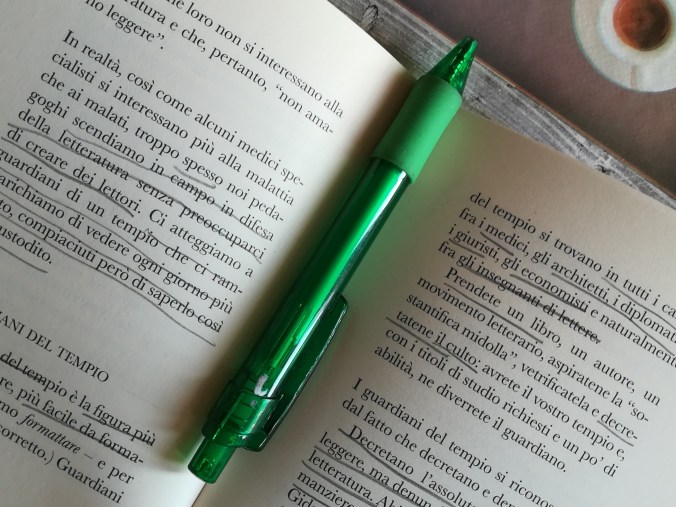 che loro non si interessano alla
ratura e che, pertanto, “non ama-
no leggere”.
In realtà, così come alcuni medici spe-
cialisti si interessano più alla malattia
che ai malati, troppo spesso noi peda-
goghi scendiamo in campo in difesa
della letteratura senza preoccuparci
di creare dei lettori. Ci atteggiamo a
guardiani di un tempio che ci ram-
marichiamo di vedere ogni giorno più
to, compiaciuti però di saperlo così
custodito.
IANI DEL TEMPIO
del tempio è la figura più
re, più facile da forma-
rno formattare – e per
corretto.) Guardiani
del tempio si trovano in tutti i ca
fra i medici, gli architetti, i diplomat
i giuristi, gli economisti e naturalmente
fra gli insegnanti di lettere.
Prendete un libro, un autore, un
movimento letterario, aspiratene la “so-
stantifica midolla”, vetrificatela e decre-
tatene il culto: avrete il vostro tempio e,
con i titoli di studio richiesti e un po’ di
abilità, ne diverrete il guardiano.
I guardiani del tempio si riconos
dal fatto che decretano e den
Decretano l’assoluta
leggere, ma denun
letteratura.
manziere
Gid